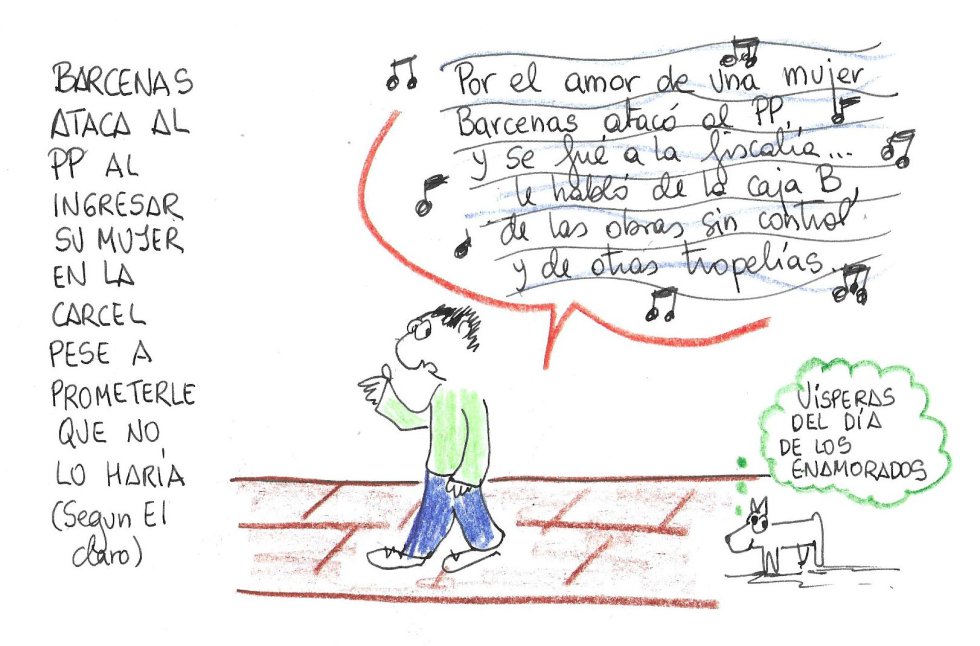 BARCENAS
ATACA AL
PP AL
INGRESAR
SU MUJER
EN LA
CARCEL
PESE A
PROMETERLE
QUE NO
LO HARÍA
(Segun El
claro)
Por el amor de una mujer
Barcenas atacó al PP,
y se fué a la fiscalía...
le habló de la caja B,
de las obras sin control
y de otras tropelías.
VÍSPERAS
DEL DÍA
DE LOS
ENAMORADOS